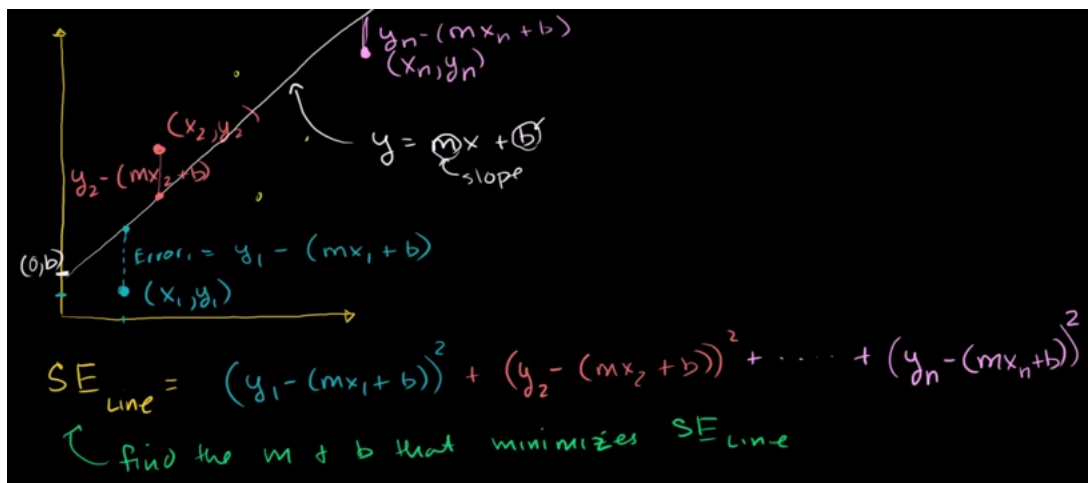 yₙ-(mxₙ+b)
(xₙ,yₙ)
(x₂,y₂)
y = mx + b
slope
y₂-(mx₂+b)
Error₁ = y₁ - (mx₁ + b)
(0,b)
(x₁,y₁)
SE Line = (y₁-(mx₁+b))² + (y₂-(mx₂+b))² + ..... + (yₙ-(mxₙ+b))²
find the m & b that minimizes SE Line